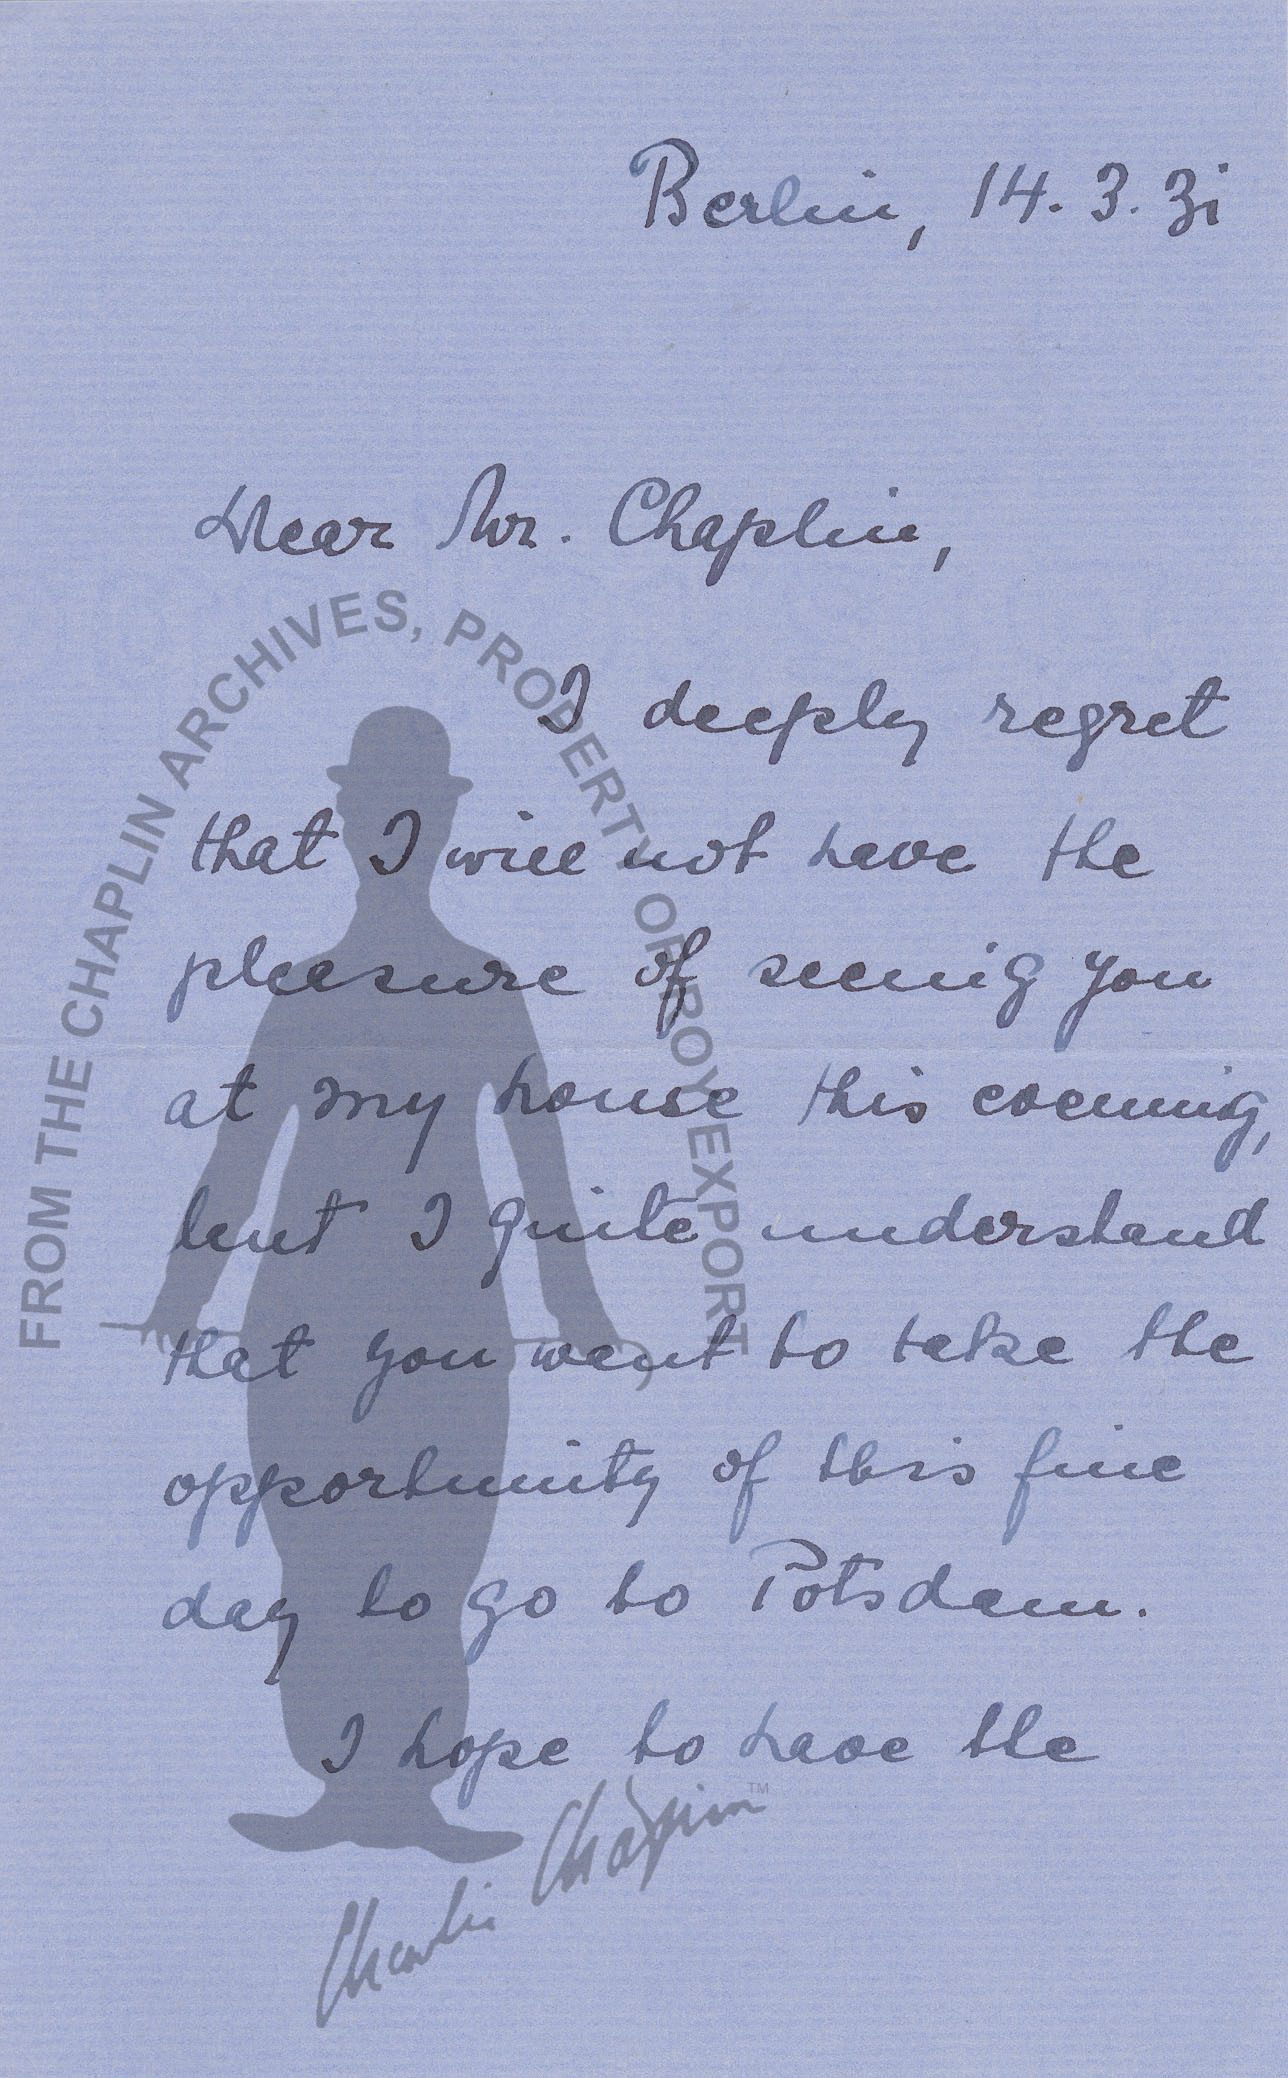 Berlin, 14. 3. 31
Dear Mr. Chaplin,
I deeply regret
that I will not have the
pleasure of seeing you
at my house this evening,
but I quite understand
that you want to take the
opportunity of this fine
day to go to Potsdam.
I hope to have the
FROM THE CHAPLIN ARCHIVES, PROPERTY OF ROY EXPORT
Charlie Chaplin™